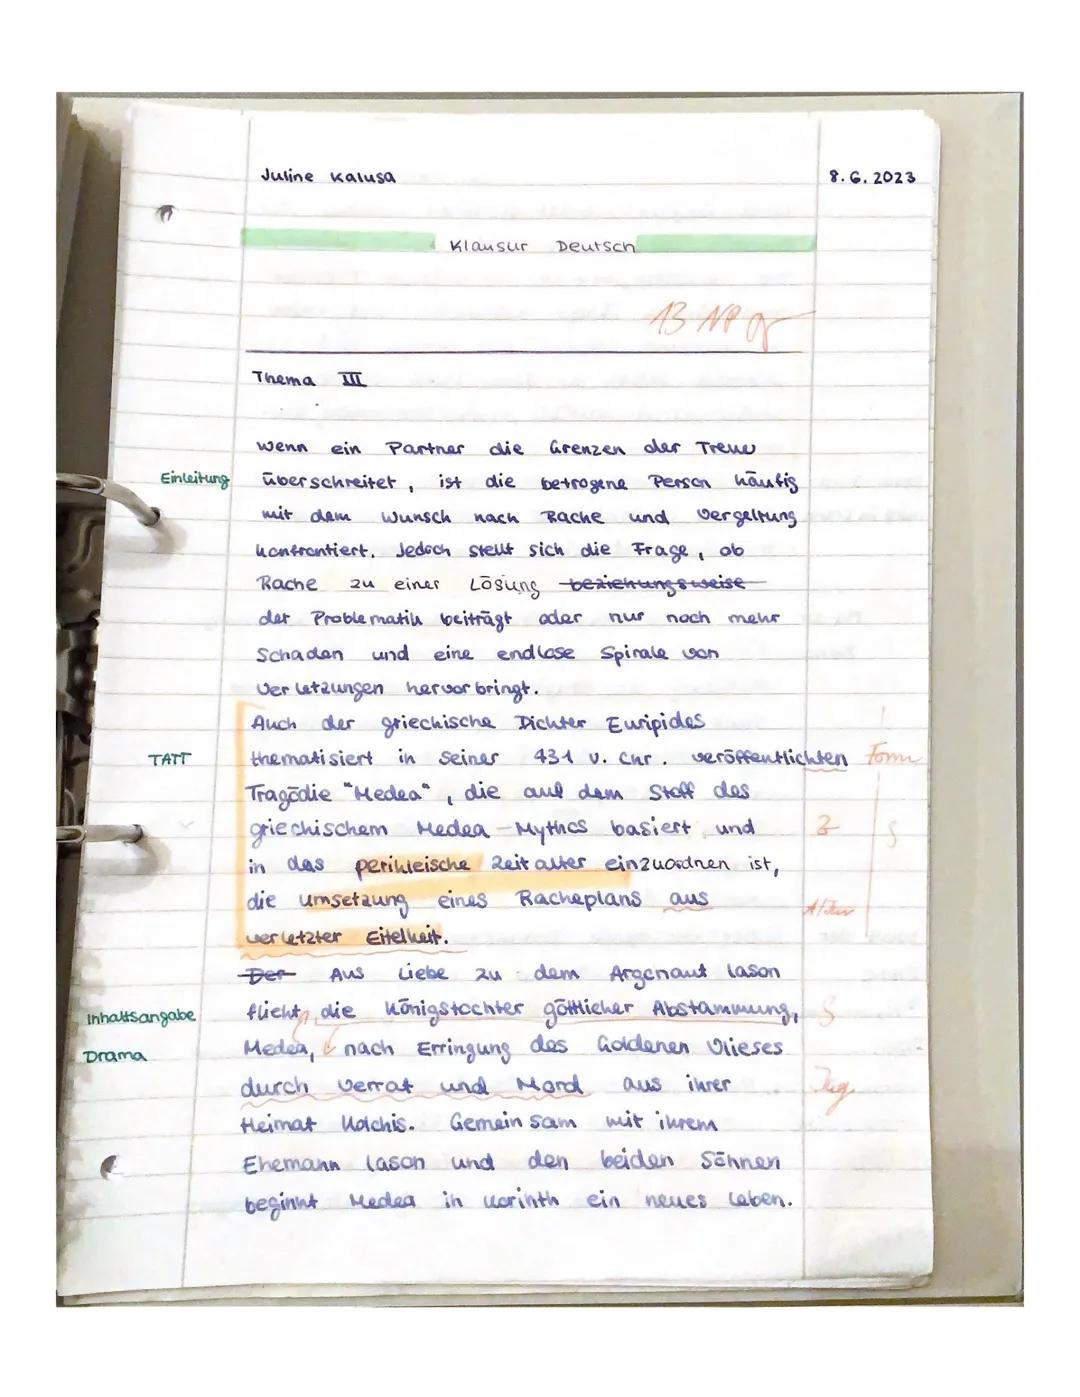 Juline Kalusa
8.6.2023
Klausur Deutsch
13 NP
Thema III
Wenn ein Partner die Grenzen der Treue
Einleitung
überschreitet, ist die betrogene Person häufig
mit dem Wunsch nach Rache und Vergeltung
konfrontiert. Jedoch stellt sich die Frage, ob
Rache zu einer Lösung beziehungsweise
der Problematik beiträgt oder nur noch mehr
Schaden und eine endlose Spirale von
Verletzungen hervorbringt.
Auch der griechische Dichter Euripides
TATT
thematisiert in seiner 431 v. Chr. veröffentlichten Form
Tragödie "Medea", die auf dem Stoff des
griechischem Medea-Mythos basiert und
Z S
in das perikleische Zeitalter einzuordnen ist,
die Umsetzung eines Racheplans aus
verletzter Eitelkeit.
Der Aus Liebe zu dem Argonaut Iason
Inhaltsangabe
flieht, die Königstochter göttlicher Abstammung, S
Drama
Medea, nach Erringung des Goldenen Vlieses
durch Verrat und Mord aus ihrer
Heimat Kolchis. Gemeinsam mit ihrem
Ehemann Iason und den beiden Söhnen
beginnt Medea in Korinth ein neues Leben.